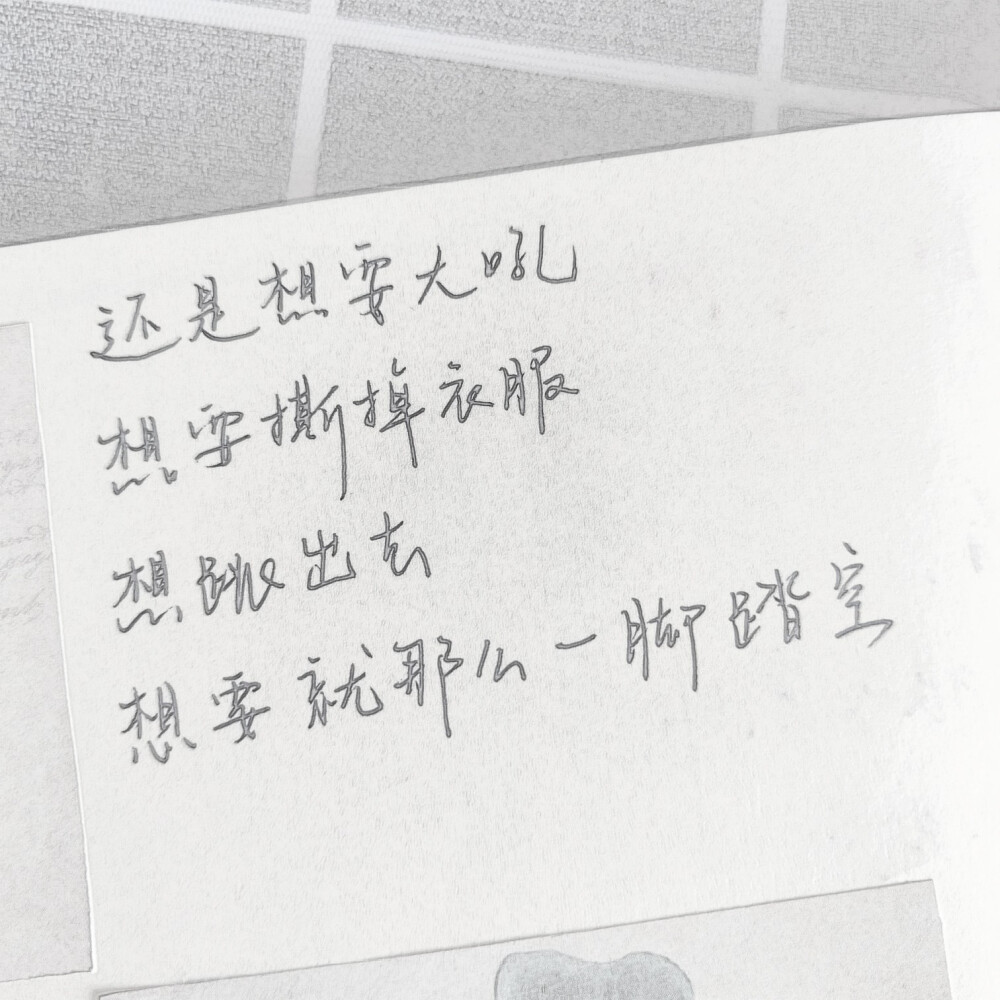 还是想要大吼
想要撕掉衣服
想跳出去
想要就那么一脚踏空